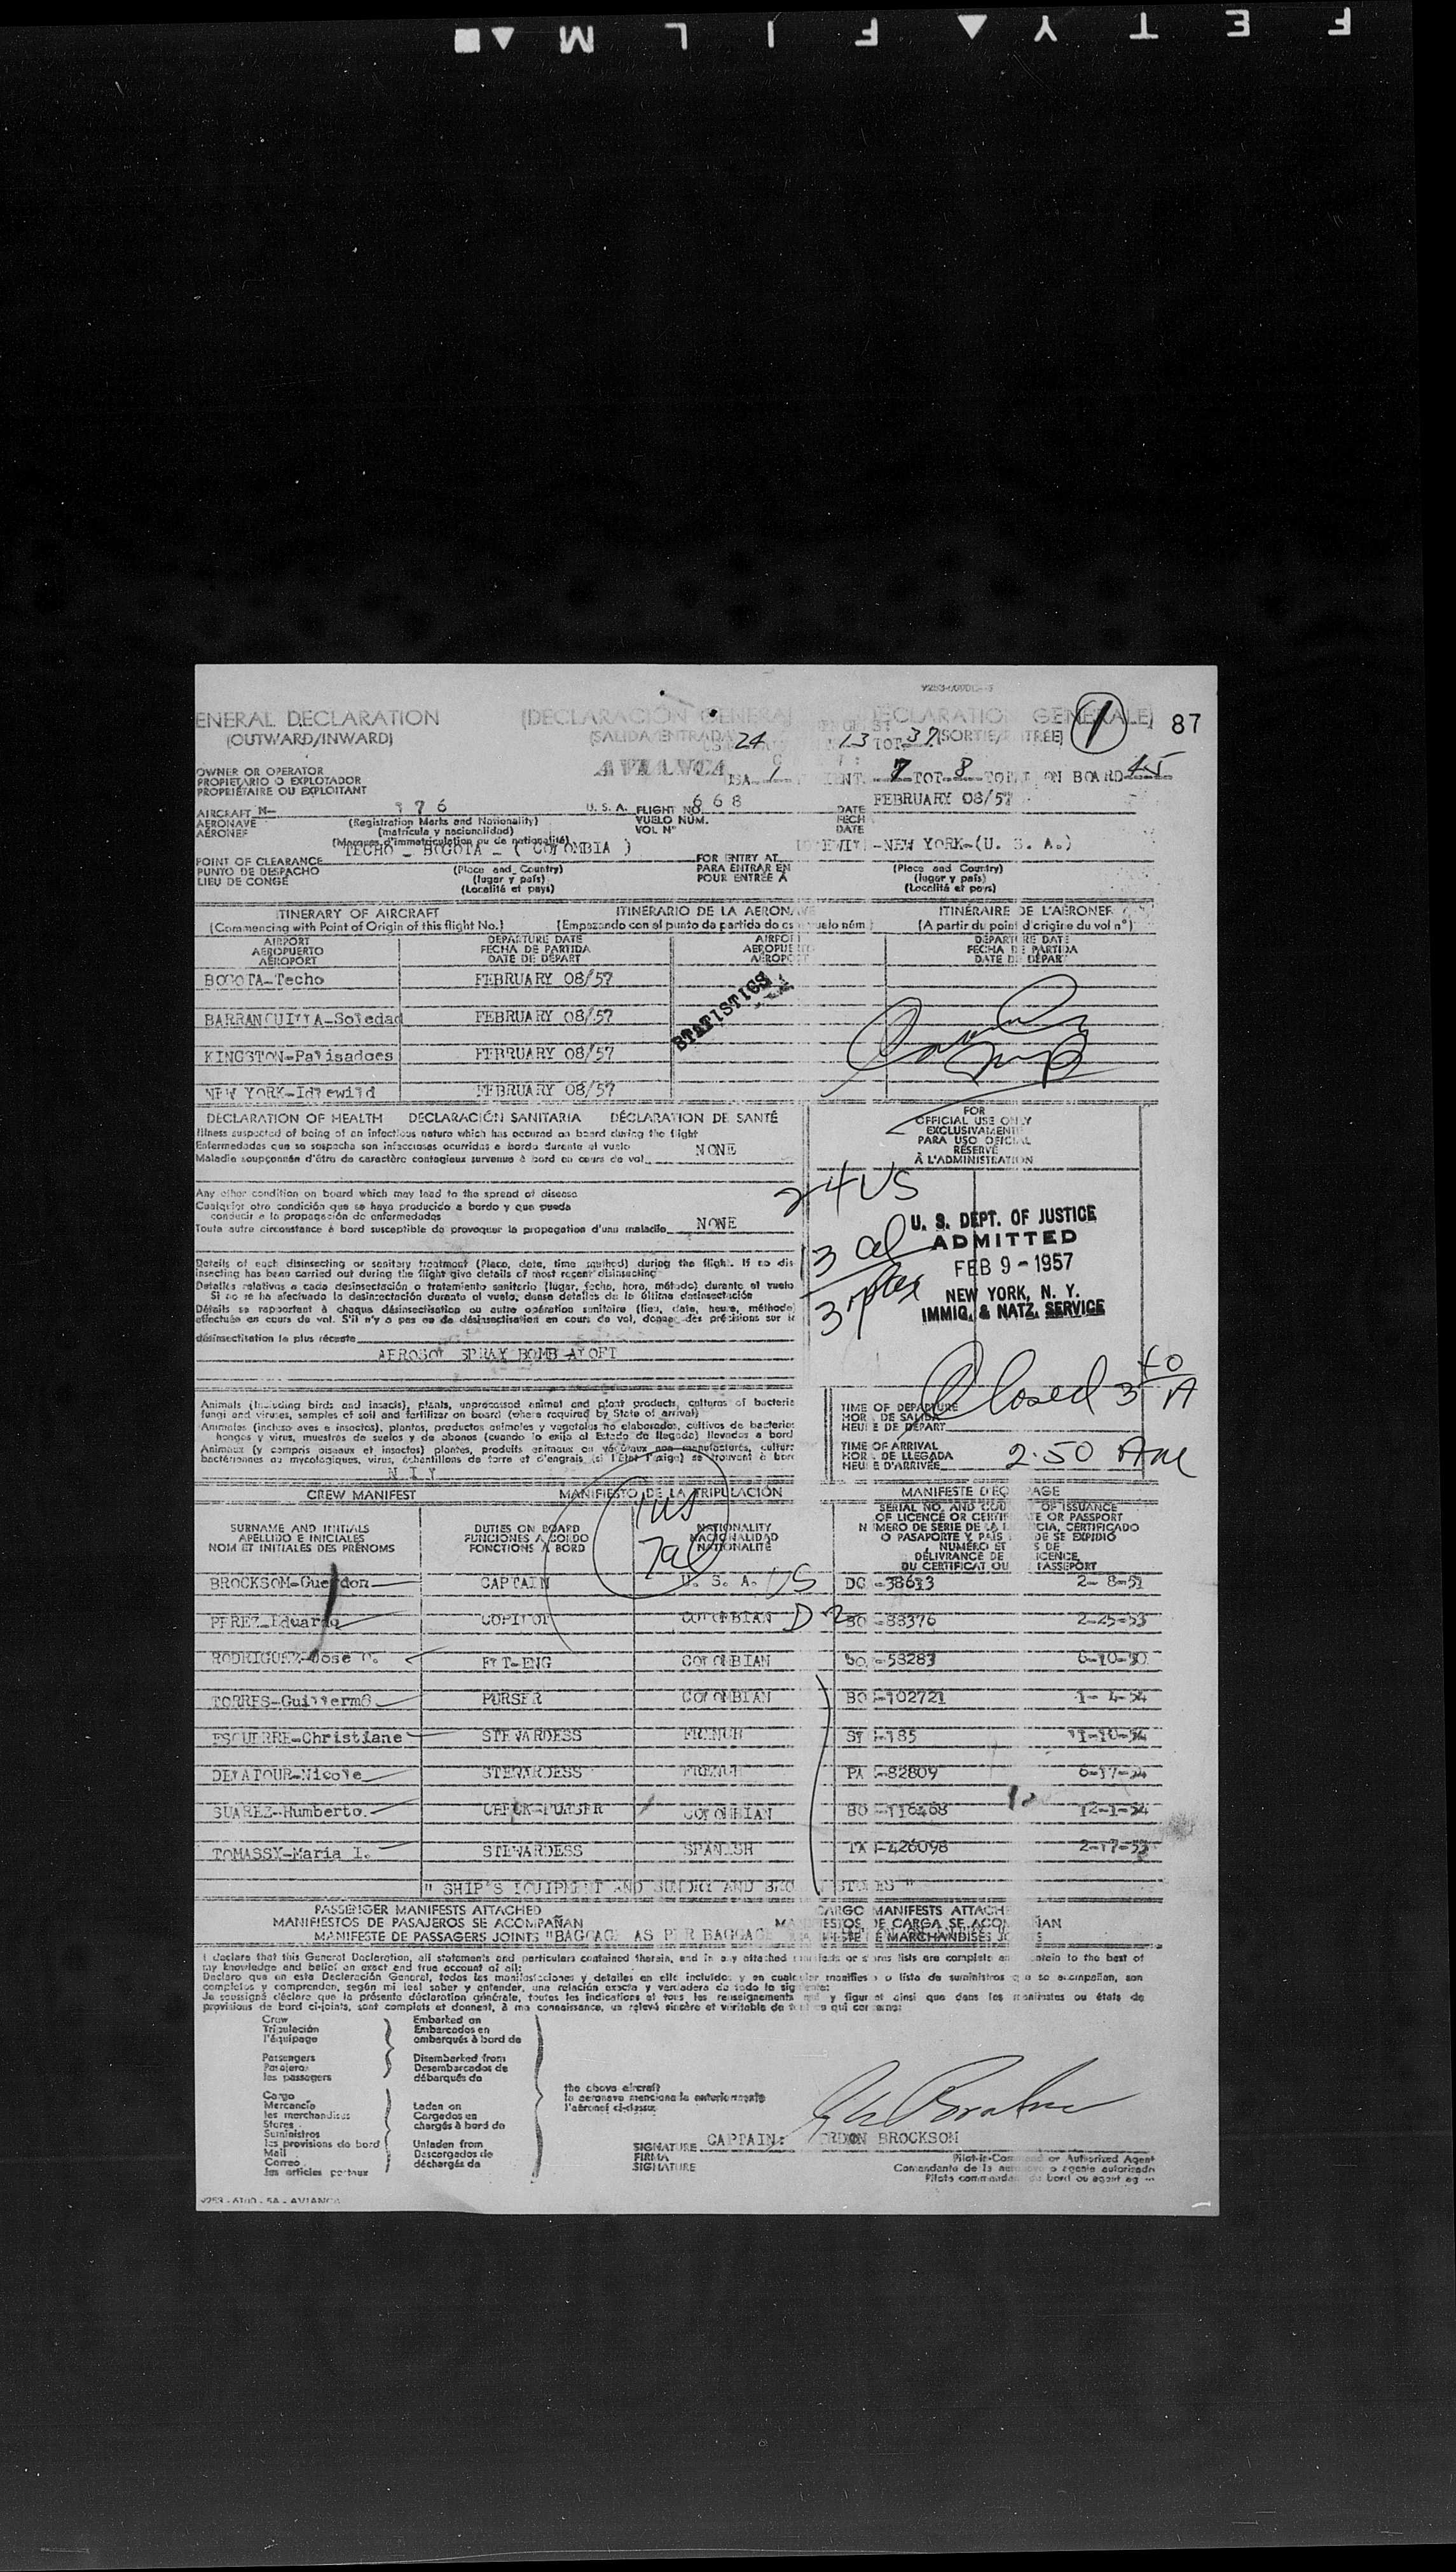 SAFETY FILM
GENERAL DECLARATION (DECLARACIÓN GENERAL) DECLARATION GENERALE) 1 87
(OUTWARD/INWARD) (SALIDA/ENTRADA) 24 13 TOT 37 (SORTIE/ENTRÉE)
OWNER OR OPERATOR
PROPIETARIO O EXPLOTADOR AVIANCA USA 1 7 TOT 8 TOTAL ON BOARD 45
PROPIÉTAIRE OU EXPLOITANT
AIRCRAFT N- 976 U. S. A. FLIGHT NO. 668 DATE FEBRUARY 08/57
AERONAVE (Registration Marks and Nationality) VUELO NUM. FECHA
AÉRONEF (matrícula y nacionalidad) VOL N° DATE
(Marques d'immatriculation ou de nationalité)
TECHO - BOGOTA - ( COLOMBIA ) IDLEWILD-NEW YORK-(U. S. A.)
POINT OF CLEARANCE (Place and Country) FOR ENTRY AT (Place and Country)
PUNTO DE DESPACHO (lugar y país) PARA ENTRAR EN (lugar y país)
LIEU DE CONGÉ (Localité et pays) POUR ENTRÉE A (Localité et pays)
ITINERARY OF AIRCRAFT ITINERARIO DE LA AERONAVE ITINÉRAIRE DE L'AÉRONEF
(Commencing with Point of Origin of this flight No.) (Empezando con el punto de partida de este vuelo núm) (A partir du point d'origine du vol n°)
AIRPORT DEPARTURE DATE AIRPORT DEPARTURE DATE
AEROPUERTO FECHA DE PARTIDA AEROPUERTO FECHA DE PARTIDA
AÉROPORT DATE DE DÉPART AÉROPORT DATE DE DÉPART
BOGOTA-Techo FEBRUARY 08/57
STATISTICS
BARRANQUILLA-Soledad FEBRUARY 08/57
KINGSTON-Palisadoes FEBRUARY 08/57
NEW YORK-Idlewild FEBRUARY 08/57
DECLARATION OF HEALTH DECLARACIÓN SANITARIA DÉCLARATION DE SANTÉ
FOR
OFFICIAL USE ONLY
EXCLUSIVAMENTE
PARA USO OFICIAL
RÉSERVÉ
À L'ADMINISTRATION
Illness suspected of being of an infectious nature which has occured on board during the flight
Enfermedades que se sospecha son infecciosas ocurridas a bordo durante el vuelo NONE
Maladie soupçonnén d'être de caractère contagieux survenue à bord en cours de vol
24 US
Any other condition on board which may lead to the spread of disease
Cualquier otra condición que se haya producido a bordo y que pueda
conducir a la propagación de enfermedades
Toute autre circonstance à bord susceptible de provoquer la propagation d'une maladie NONE
13 al
U. S. DEPT. OF JUSTICE
ADMITTED
FEB 9 - 1957
NEW YORK, N. Y.
IMMIG. & NATZ. SERVICE
Details of each disinsecting or sanitary treatment (Place, date, time method) during the flight. If no disinsecting has been carried out during the flight give details of most recent disinsecting
Detalles relativos a cada desinsectación o tratamiento sanitario (lugar, fecha, hora, método) durante el vuelo
Si no se ha afectuado la desinsectación durante el vuelo, dense detalles de la última desinsectación
Détails se rapportant à chaque désinsectisation ou autre opération sanitaire (lieu, date, heure, méthode)
effectuée en cours de vol. S'il n'y a pas eu de désinsectisation en cours de vol, donner des précisions sur la
désinsectisation la plus récente
AEROSOL SPRAY BOMB ALOFT
Closed 3 40 A
Animals (Including birds and insects), plants, unprocessed animal and plant products, cultures of bacteria
fungi and viruses, samples of soil and fertilizer on board (where required by State of arrival)
Animales (incluso aves e insectos), plantas, productos animales y vegetales no elaborados, cultivos de bacterias
hongos y virus, muestras de suelos y de abonos (cuando lo exija el Estado de llegada) llevados a bordo
Animaux (y compris oiseaux et insectes) plantes, produits animaux ou végétaux non manufacturés, culture
bactériennes ou mycologiques, virus, échantillons de terre et d'engrais (si l'État l'exige) se trouvant à bord
N I L
TIME OF DEPARTURE
HORA DE SALIDA
HEURE DE DÉPART
TIME OF ARRIVAL
HORA DE LLEGADA 2.50 AM
HEURE D'ARRIVÉE
CREW MANIFEST MANIFIESTO DE LA TRIPULACIÓN MANIFESTE D'ÉQUIPAGE
1 US
7 al
SURNAME AND INITIALS DUTIES ON BOARD NATIONALITY
APELLIDO E INICIALES FUNCIONES A BORDO NACIONALIDAD
NOM ET INITIALES DES PRÉNOMS FONCTIONS A BORD NATIONALITÉ
SERIAL NO. AND COUNTRY OF ISSUANCE
OF LICENCE OR CERTIFICATE OR PASSPORT
NÚMERO DE SERIE DE LA LICENCIA, CERTIFICADO
O PASAPORTE Y PAÍS DONDE SE EXPIDIÓ
NUMÉRO ET PAYS DE
DÉLIVRANCE DE LICENCE,
DU CERTIFICAT OU PASSEPORT
BROCKSOM-Guerdon CAPTAIN U. S. A. US DG -38613 2- 8-51
PEREZ-Eduardo COPILOT COLOMBIAN D-2 BO -88376 2-25-53
RODRIGUEZ-Jose FLT-ENG COLOMBIAN BO -58283 6-10-50
TORRES-Guillermo PURSER COLOMBIAN BO -102721 1- 4-54
ESCUERRE-Christiane STEWARDESS FRENCH ST -185 11-10-54
DELATOUR-Nicole STEWARDESS FRENCH PA -82809 6-17-54
SUAREZ-Humberto. CHECK-PURSER COLOMBIAN BO -116468 12-1-54
TOMASSY-Maria I. STEWARDESS SPANISH PA -426098 2-17-53
" SHIP'S EQUIPMENT AND SUNDRY AND STORES "
PASSENGER MANIFESTS ATTACHED CARGO MANIFESTS ATTACHED
MANIFIESTOS DE PASAJEROS SE ACOMPAÑAN MANIFIESTOS DE CARGA SE ACOMPAÑAN
MANIFESTE DE PASSAGERS JOINTS "BAGGAGE AS PER BAGGAGE MANIFESTE DE MARCHANDISES JOINTS
I declare that this General Declaration, all statements and particulars contained therein, and in any attached manifests or stores lists are complete and certain to the best of
my knowledge and belief an exact and true account of all:
Declaro que en esta Declaración General, todos los manifestaciones y detalles en ella incluidos y en cualquier manifiesto o lista de suministros que se acompañan, son
completos y comprenden, según mi leal saber y entender, una relación exacta y verdadera de todo lo siguiente:
Je soussigné déclare que la présente déclaration générale, toutes les indications et tous les renseignements qui y figurent ainsi que dans les manifestes ou états de
provisions de bord ci-joints, sont complets et donnent, à ma connaissance, un relevé sincère et véritable de tout ce qui concerne:
Crew Embarked on
Tripulación Embarcados en
l'équipage embarqués à bord de
Passengers Disembarked from
Pasajeros Desembarcados de
les passagers débarqués de
Cargo the above aircraft
Mercancía Laden on la aeronave menciona la anteriormente
les marchandises Cargados en l'aéronef ci-dessus
Stores chargés à bord de
Suministros
les provisions de bord Unladen from
Mail Descargados de
Correo déchargés de
les articles postaux
SIGNATURE CAPTAIN: GUERDON BROCKSOM
FIRMA
SIGNATURE
Pilot-in-Command or Authorized Agent
Comandante de la aeronave o agente autorizado
Pilote commandant de bord ou agent
9253 - 6100 - 5A - AVIANCA